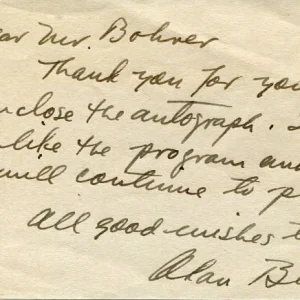 ear Mr. Bohrer
Thank you for you
nclose the autograph.
like the program and
will continue to p
all good wishes t
Alan B